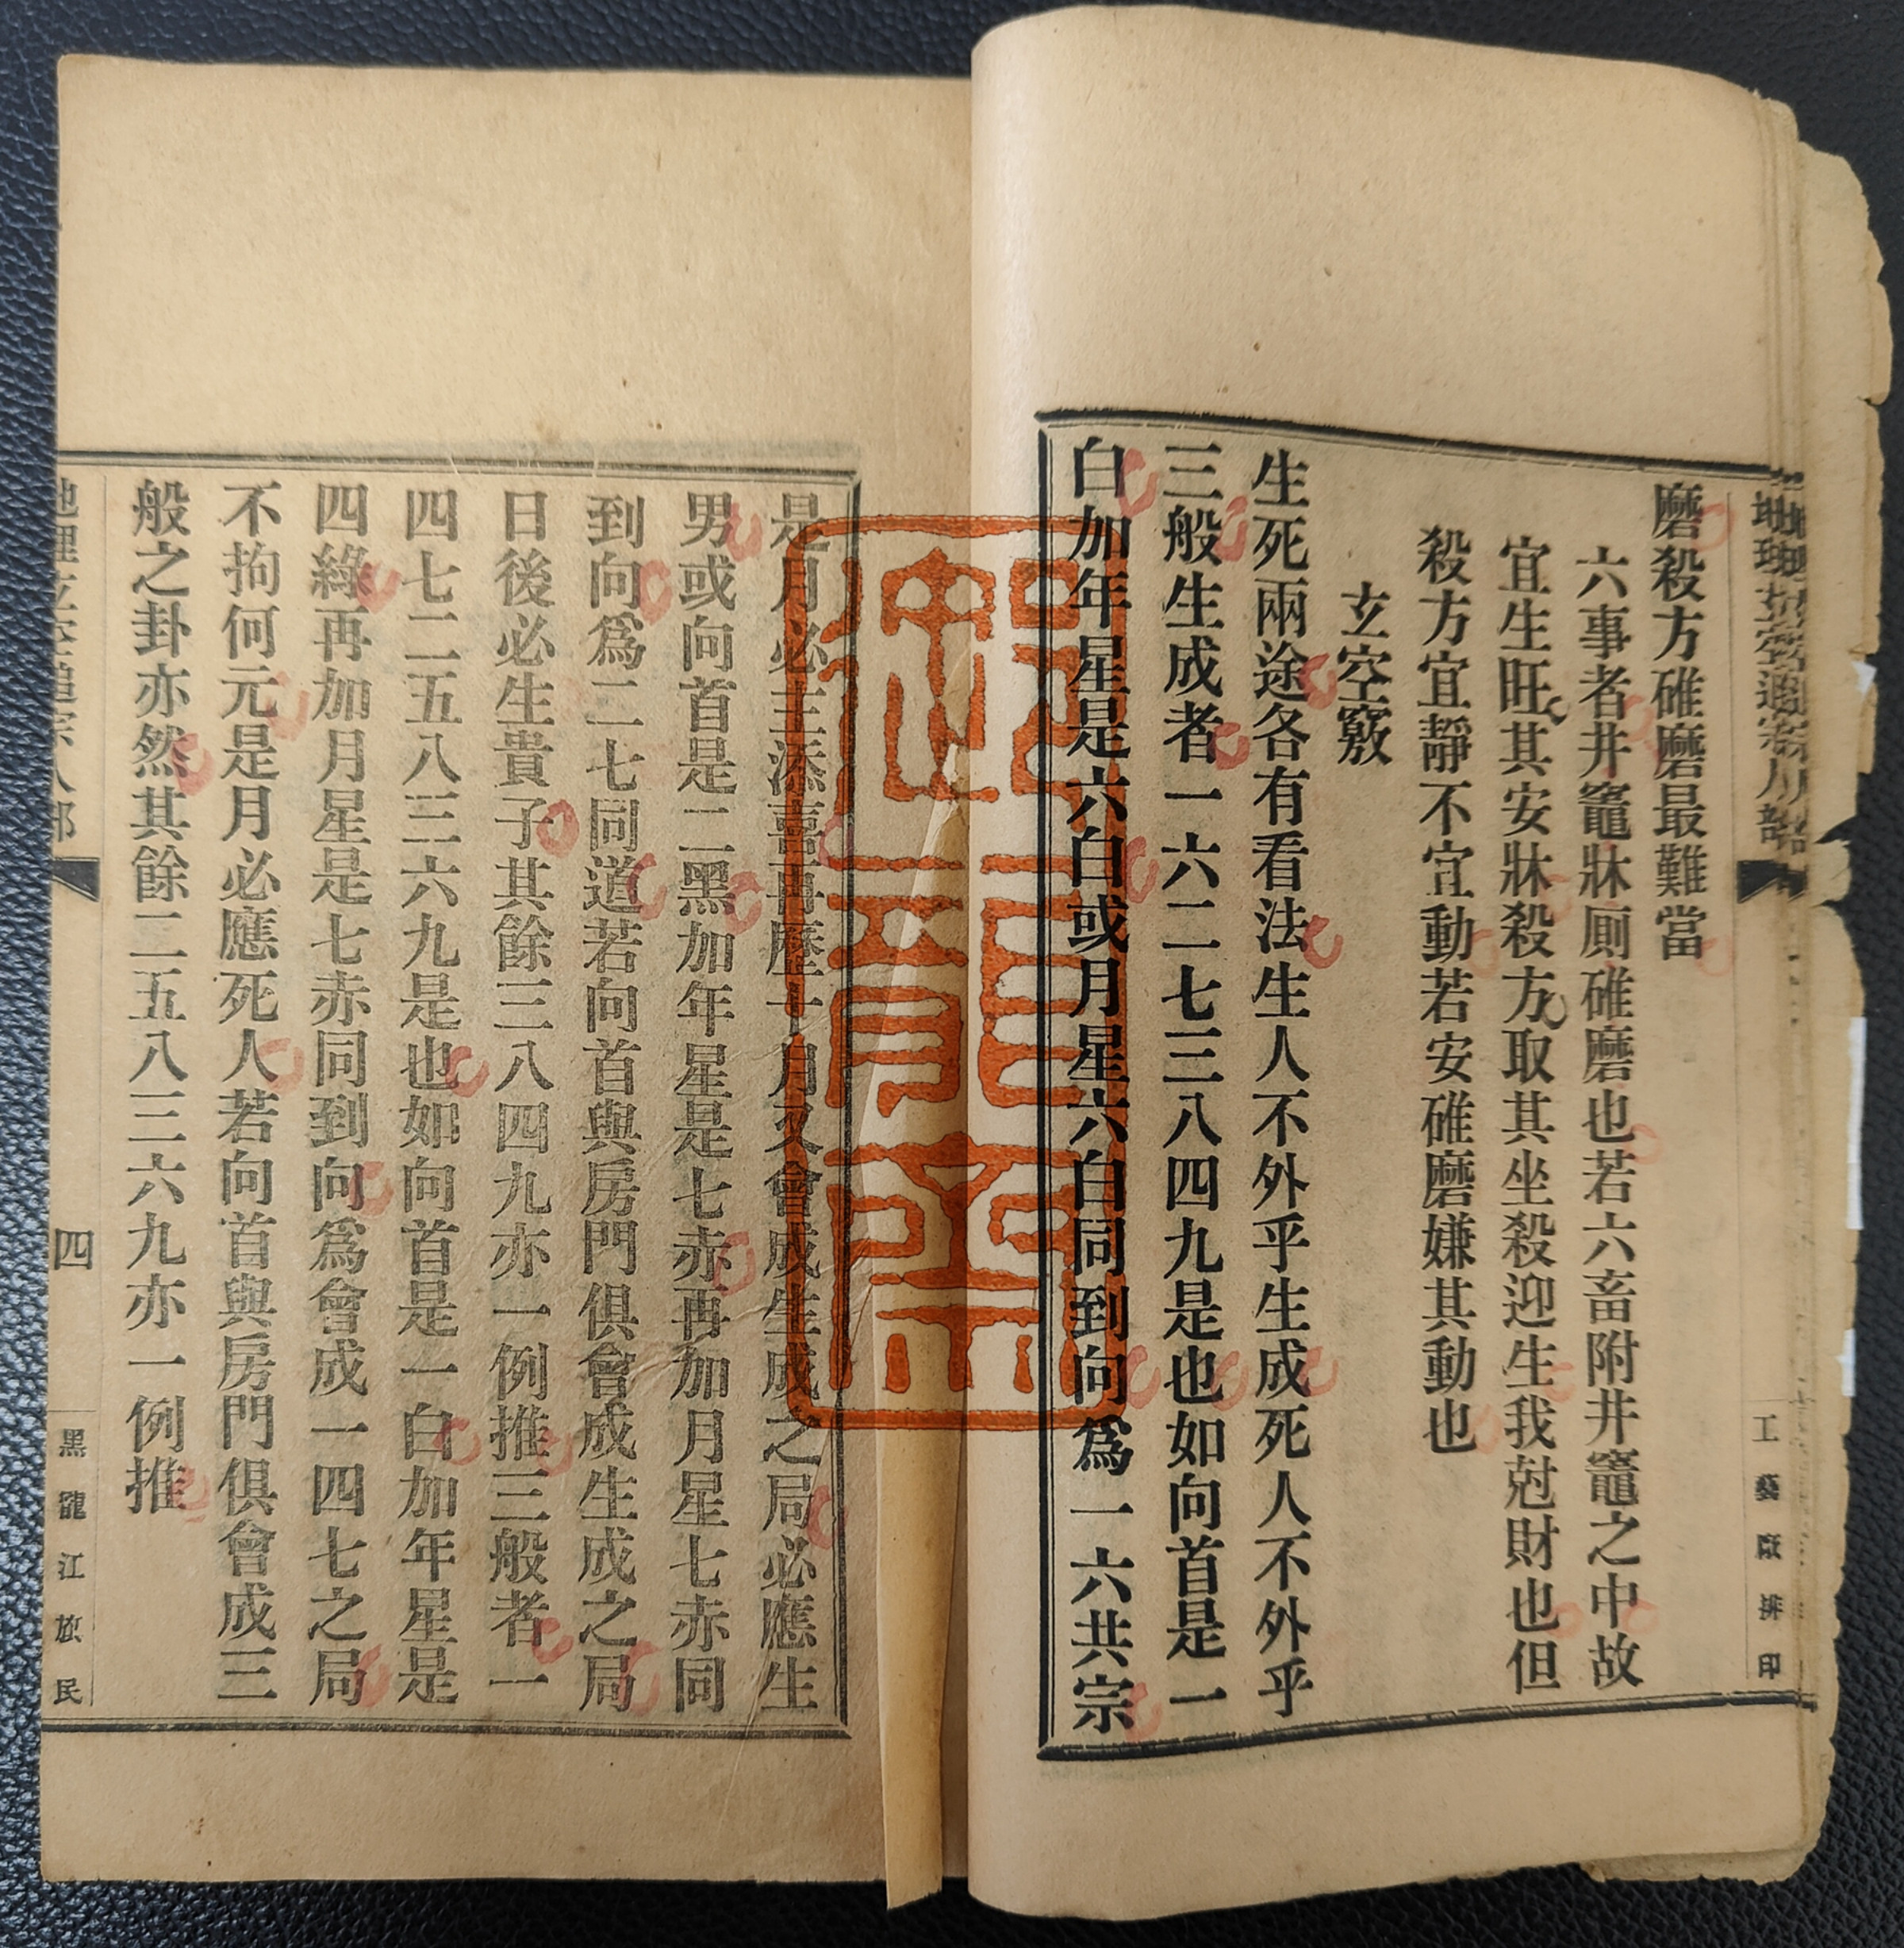 工藝廠排印
磨殺方碓磨最難當
六事者井竈牀厠碓磨也若六畜附井竈之中故
宜生旺其安牀殺方取其坐殺迎生我尅財也但
殺方宜靜不宜動若安碓磨嫌其動也
玄空竅
生死兩途各有看法生人不外乎生成死人不外乎
三般生成者一六二七三八四九是也如向首是一
白加年星是六白或月星六白同到向爲一六共宗
是月必主添喜再歷十月又會成生成之局必應生
男或向首是二黑加年星是七赤再加月星七赤同
到向爲二七同道若向首與房門俱會成生成之局
日後必生貴子其餘三八四九亦一例推三般者一
四七二五八三六九是也如向首是一白加年星是
四綠再加月星是七赤同到向爲會成一四七之局
不拘何元是月必應死人若向首與房門俱會成三
般之卦亦然其餘二五八三六九亦一例推
四
黑龍江旗民